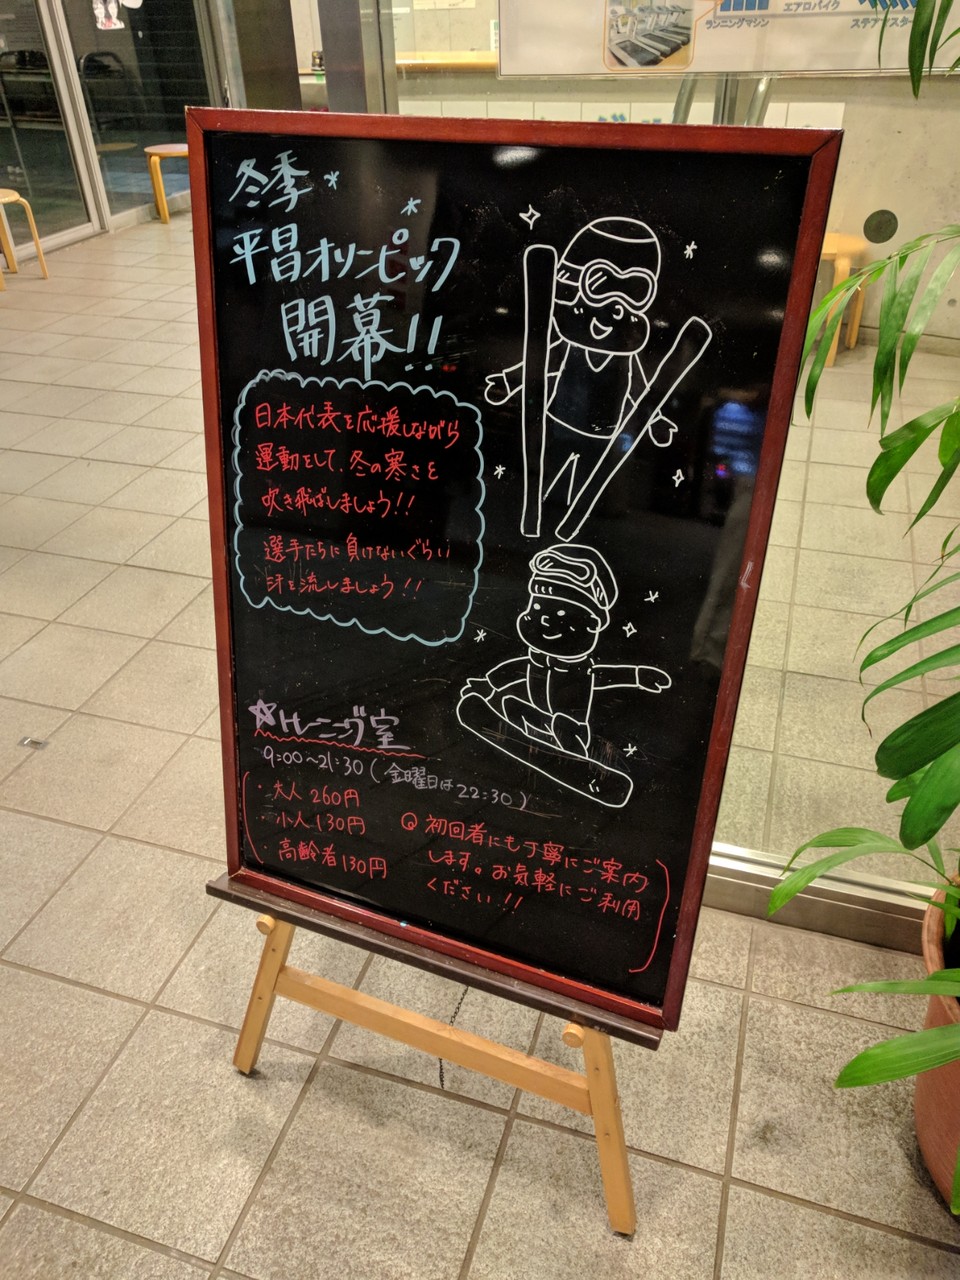 ランニングマシン
エアロバイク
冬季
平昌オリンピック
開幕!!
日本代表を応援しながら
運動をして、冬の寒さを
吹き飛ばしましょう!!
選手たちに負けないぐらい
汗を流しましょう!!
☆トレーニング室
9:00~21:30(金曜日は22:30)
・大人 260円
・小人 130円
・高齢者130円
初回者にも丁寧にご案内
します。お気軽にご利用
ください!!